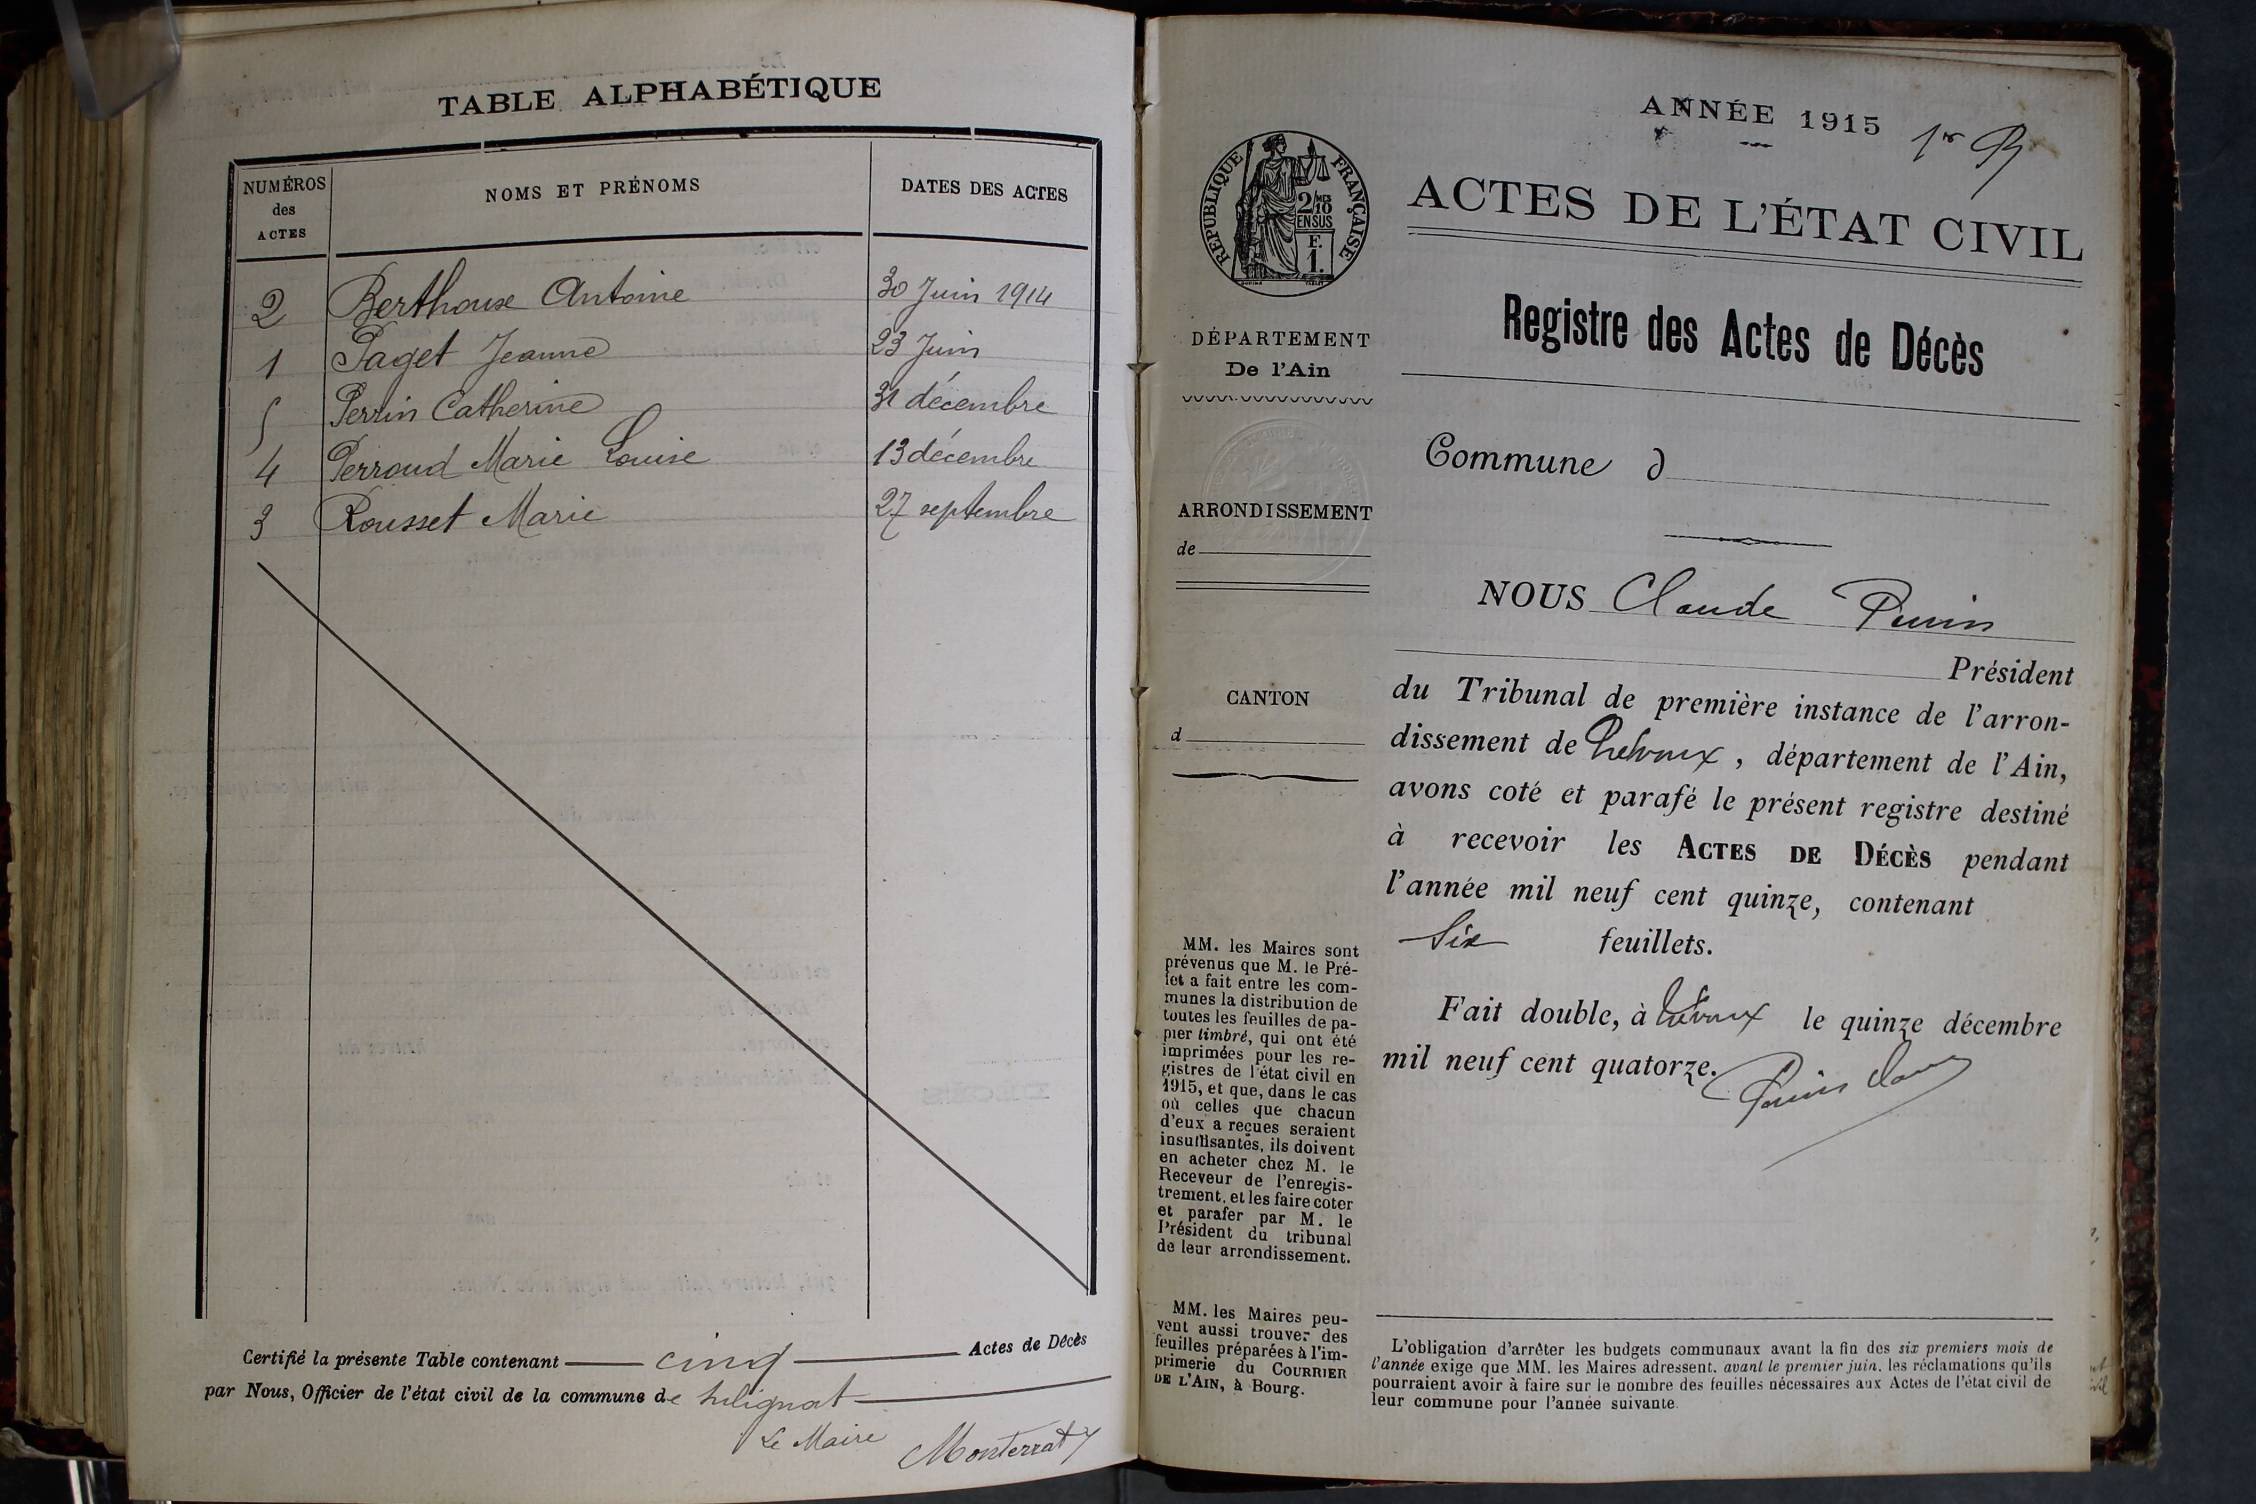 TABLE ALPHABÉTIQUE
NUMÉROS des ACTES
NOMS ET PRÉNOMS
DATES DES ACTES
2 Berthoux Antoine 30 Juin 1914
1 Paget Jeanne 23 Juin
5 Perrin Catherine 31 décembre
4 Perroud Marie Louise 13 décembre
3 Rousset Marie 27 septembre
Certifié la présente Table contenant cinq Actes de Décès
par Nous, Officier de l'état civil de la commune de
Le Maire
Monterrat
ANNÉE 1915
1er
RÉPUBLIQUE FRANÇAISE
2/10 MES
EN SUS
F.
1.
ACTES DE L'ÉTAT CIVIL
Registre des Actes de Décès
DÉPARTEMENT
De l'Ain
Commune d
ARRONDISSEMENT
de
NOUS Claude Perrin
Président
CANTON
d
du Tribunal de première instance de l'arron-
dissement de Trévoux, département de l'Ain,
avons coté et parafé le présent registre destiné
à recevoir les ACTES DE DÉCÈS pendant
l'année mil neuf cent quinze, contenant
Six feuillets.
Fait double, à Trévoux le quinze décembre
mil neuf cent quatorze.
MM. les Maires sont
prévenus que M. le Pré-
fet a fait entre les com-
munes la distribution de
toutes les feuilles de pa-
pier timbré, qui ont été
imprimées pour les re-
gistres de l'état civil en
1915, et que, dans le cas
où celles que chacun
d'eux a reçues seraient
insuffisantes, ils doivent
en acheter chez M. le
Receveur de l'enregis-
trement, et les faire coter
et parafer par M. le
Président du tribunal
de leur arrondissement.
MM. les Maires peu-
vent aussi trouver des
feuilles préparées à l'im-
primerie du COURRIER
DE L'AIN, à Bourg.
L'obligation d'arrêter les budgets communaux avant la fin des six premiers mois de
l'année exige que MM. les Maires adressent, avant le premier juin, les réclamations qu'ils
pourraient avoir à faire sur le nombre des feuilles nécessaires aux Actes de l'état civil de
leur commune pour l'année suivante.